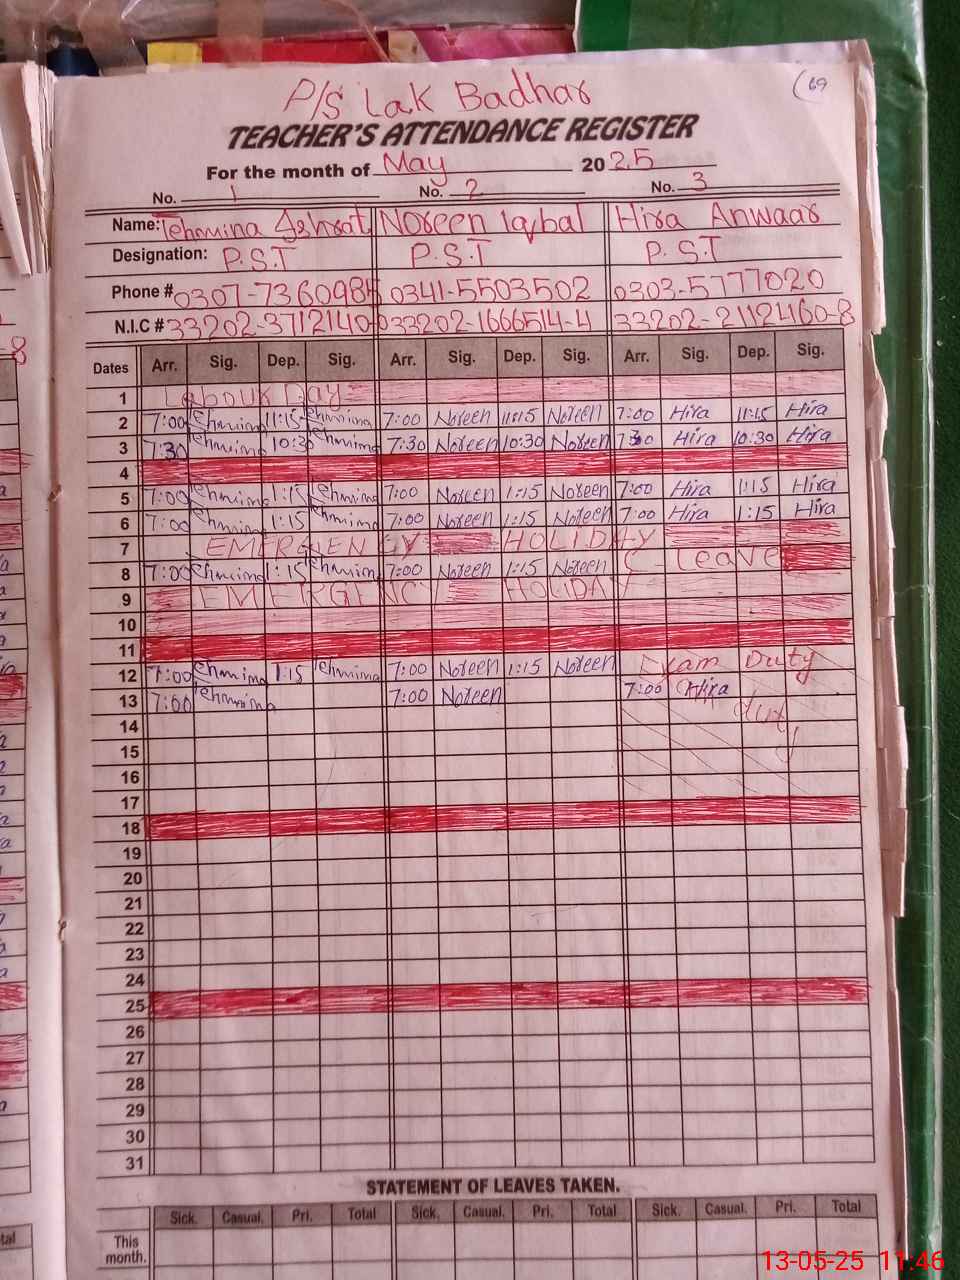 69
P/S Lak Badhar
TEACHER'S ATTENDANCE REGISTER
For the month of May 2025
No. 1 No. 2 No. 3
Name: Tehmina Ishrat Noreen Iqbal Hira Anwaar
Designation: P.S.T P.S.T P.S.T
Phone # 0307-7360985 0341-5503502 0303-5777020
N.I.C # 33202-3712140-0 33202-1666514-4 33202-2112460-8
Dates Arr. Sig. Dep. Sig. Arr. Sig. Dep. Sig. Arr. Sig. Dep. Sig.
1 Labour Day
2 7:00 Tehmina 11:15 Tehmina 7:00 Noreen 11:15 Noreen 7:00 Hira 11:15 Hira
3 7:30 Tehmina 10:30 Tehmina 7:30 Noreen 10:30 Noreen 7:30 Hira 10:30 Hira
4
5 7:00 Tehmina 1:15 Tehmina 7:00 Noreen 1:15 Noreen 7:00 Hira 1:15 Hira
6 7:00 Tehmina 1:15 Tehmina 7:00 Noreen 1:15 Noreen 7:00 Hira 1:15 Hira
7 EMERGENCY HOLIDAY
8 7:00 Tehmina 1:15 Tehmina 7:00 Noreen 1:15 Noreen C-Leave
9 EMERGENCY HOLIDAY
10
11
12 7:00 Tehmina 1:15 Tehmina 7:00 Noreen 1:15 Noreen Exam Duty
13 7:00 Tehmina 7:00 Noreen 7:00 Hira duty
14
15
16
17
18
19
20
21
22
23
24
25
26
27
28
29
30
31
STATEMENT OF LEAVES TAKEN.
Sick. Casual. Pri. Total Sick. Casual. Pri. Total Sick. Casual. Pri. Total
This month.
13-05-25 11:46